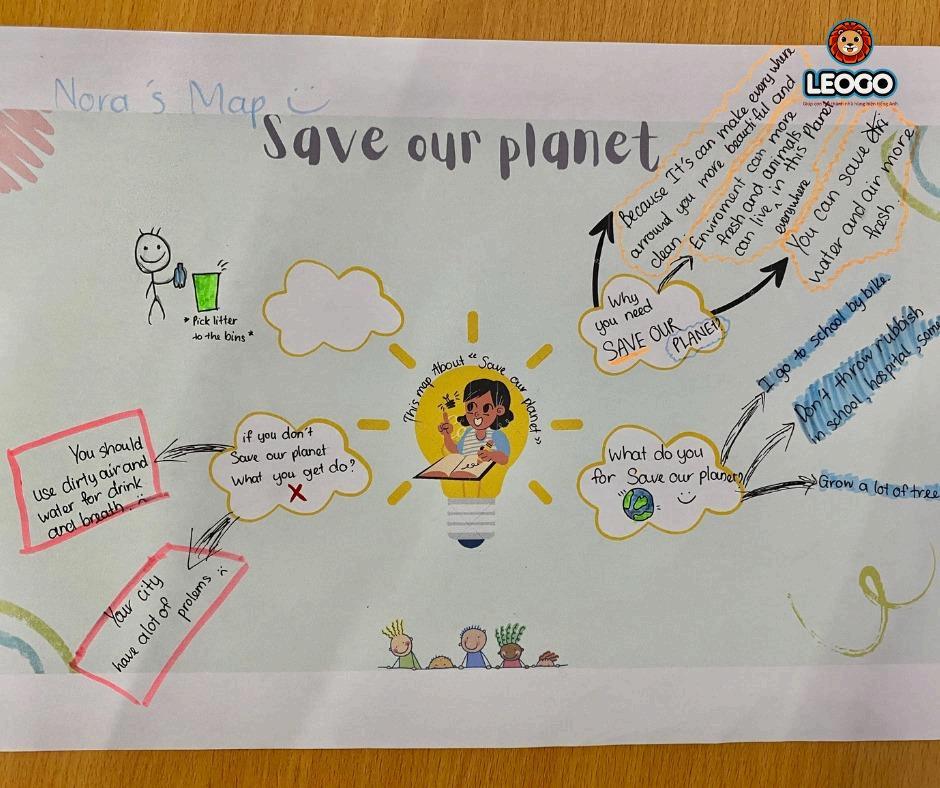 Nora's Map
Save our planet
LEOGO
Because It's can make every where
arround you more beautiful and
clean
Enviroment can more
fresh and animals
can live in this Planet
everywhere
You can save
water and air more
fresh.
Why
you need
SAVE OUR
PLANET?
* Pick litter
to the bins *
This map About "Save our planet"
if you don't
Save our planet
what you get do?
You should
use dirty air and
water for drink
and breath
Your city
have a lot of
prolems
what do you
for Save our planet?
I go to school by bike.
Don't throw rubbish
in school, hospital, some
Grow a lot of tree